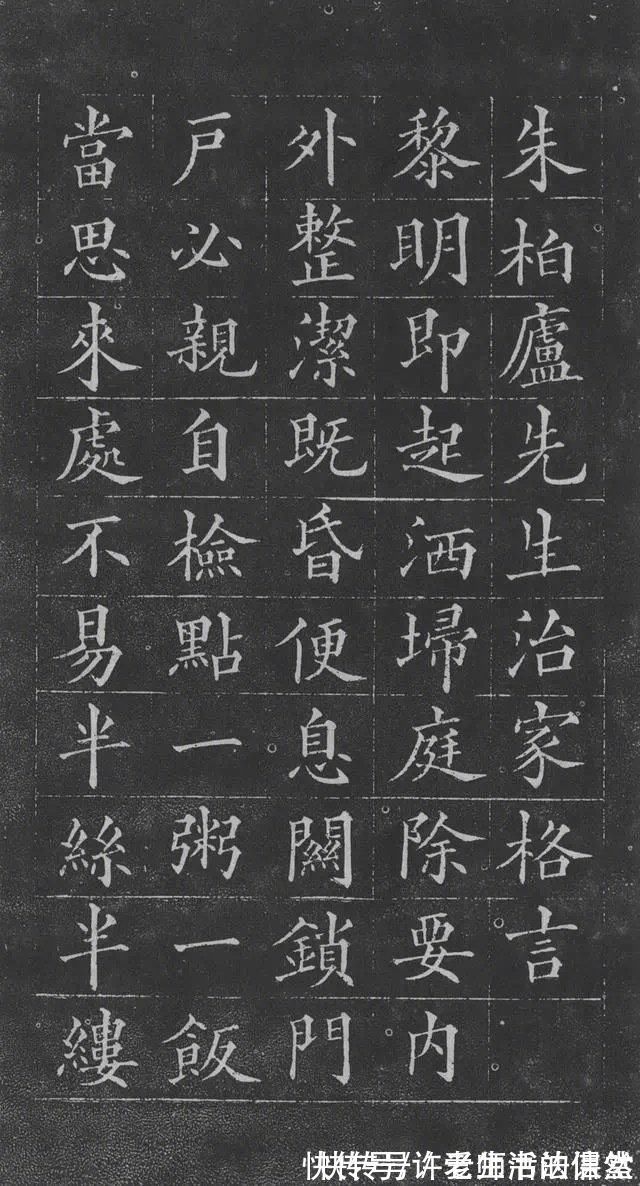 朱柏廬先生治家格言
黎明即起洒埽庭除要内
外整潔既昏便息關鎖門
戸必親自檢點一粥一飯
當思來處不易半絲半縷
快转号/许老师书法课堂